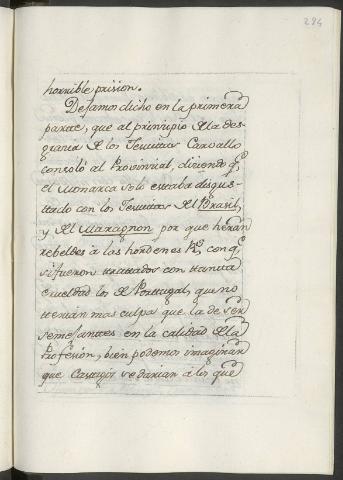 284
horrible prision.
Dejamos dicho en la primera
parte, que al prinripio de la des-
graria de los Jesuitas Carvallo
consoló al Provinrial, diciendo q.e
el Monarca solo estaba disgus-
ttado con los Jesuitas del Brasil,
y del Maragnon por que heran
rebeldes á las hordenes R.s, con q.e
si fueron trattados con tantta
crueldad los de Porttugal, que no
ttenian mas culpa que la de ser
semejanttes en la calidad de la
Profesion, bien podemos imaginar
que Casttigos se darian á los que